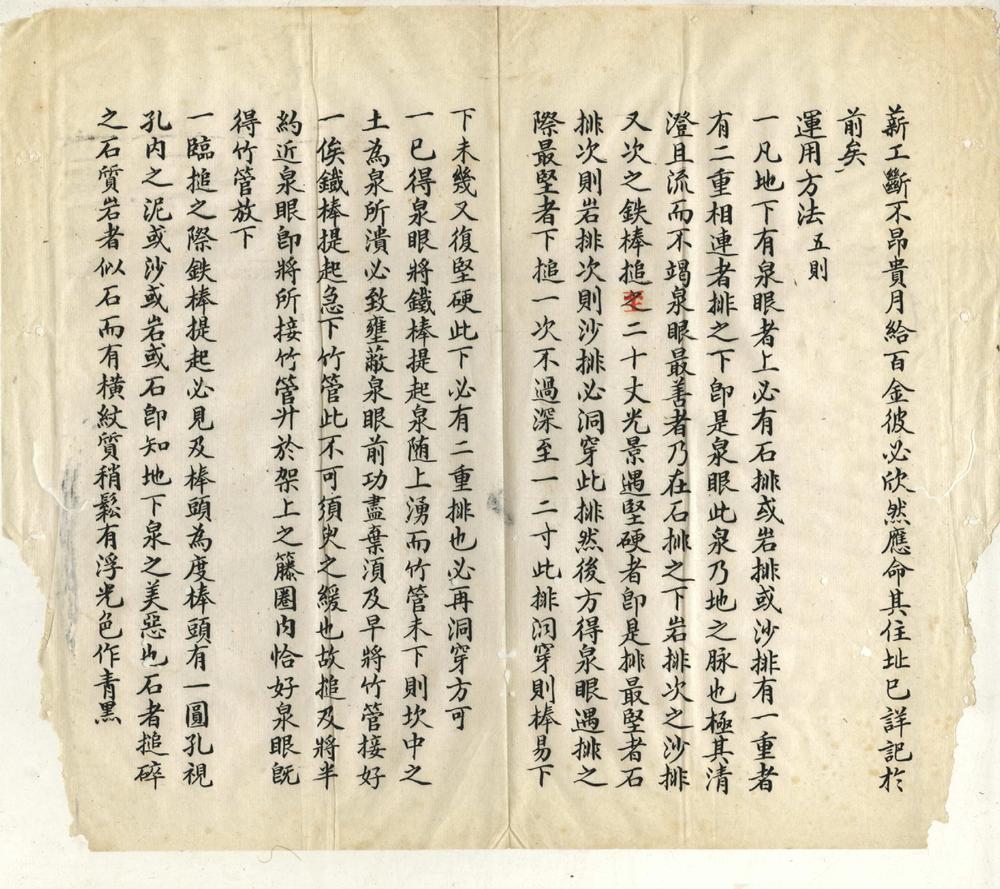 薪工斷不昂貴月給百金彼必欣然應命其住址已詳記於
前矣
運用方法五則
一凡地下有泉眼者上必有石排或岩排或沙排有一重者
有二重相連者排之下即是泉眼此泉乃地之脉也極其清
澄且流而不竭泉眼最善者乃在石排之下岩排次之沙排
又次之鉄棒搥至二十丈光景遇堅硬者即是排最堅者石
排次則岩排次則沙排必洞穿此排然後方得泉眼遇排之
際最堅者下搥一次不過深至一二寸此排洞穿則棒易下
下未幾又復堅硬此下必有二重排也必再洞穿方可
一已得泉眼將鐵棒提起泉随上湧而竹管未下則坎中之
土為泉所潰必致壅蔽泉眼前功盡棄湏及早將竹管接好
一俟鐵棒提起急下竹管此不可須臾之緩也故搥及將半
約近泉眼即將所接竹管升於架上之籐圈内恰好泉眼既
得竹管放下
一臨搥之際鉄棒提起必見及棒頭為度棒頭有一圓孔視
孔内之泥或沙或岩或石即知地下泉之美惡也石者搥碎
之石質岩者似石而有橫紋質稍鬆有浮光色作青黑